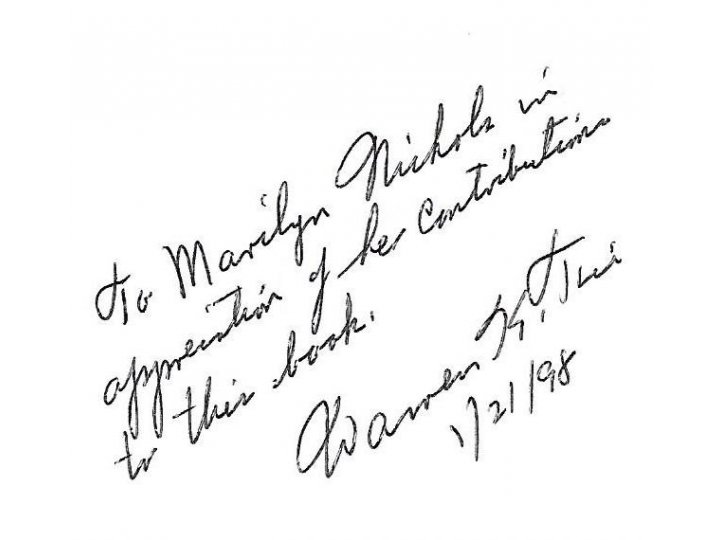 To Marilyn Nichols in
appreciation of her contributions
to this book.
Warren K. Tsui
1/21/98